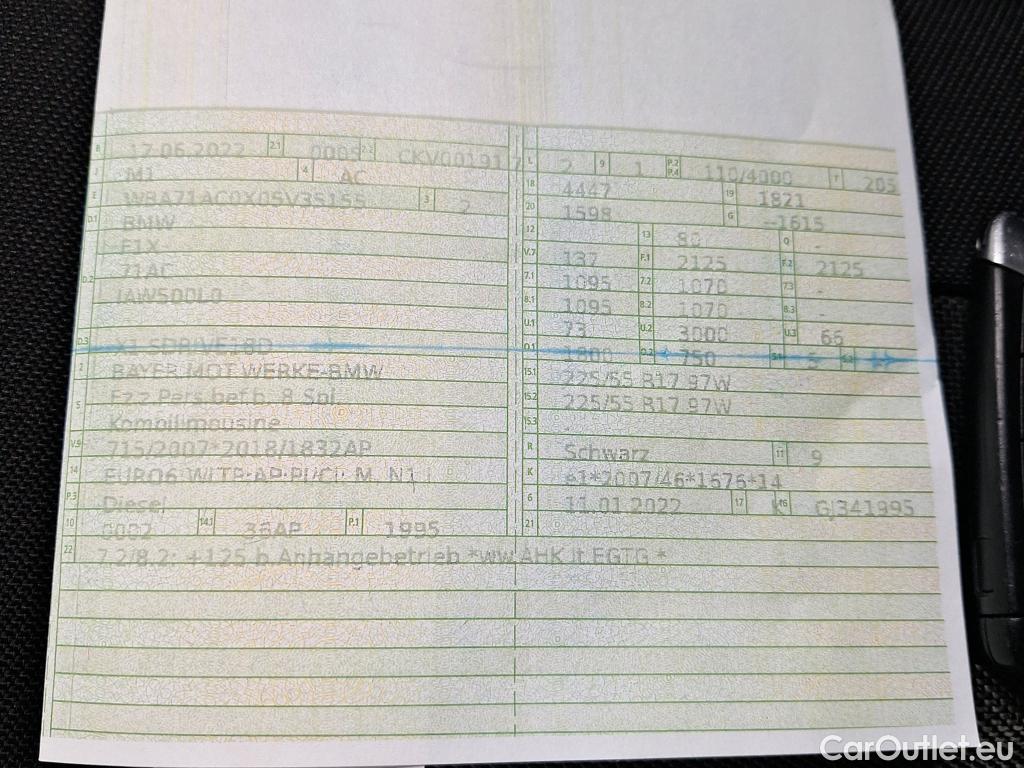 B 17.06.2022 2.1 0005 2.2 CKV00191 7
J M1 4 AC
E WBA71AC0X05V35155 3 2
D.1 BMW
F1X
D.2 71AC
IAW500L0
D.3 X1 SDRIVE18D
2 BAYER.MOT.WERKE-BMW
5 Fz.z.Pers.bef.b. 8 Spl.
Kombilimousine
V.9 715/2007*2018/1832AP
14 EURO6 WLTP-AP;PI/CI; M, N1 I
P.3 Diesel
10 0002 14.1 36AP P.1 1995
L 2 9 1 P.2 P.4 110/4000 T 205
18 4447 19 1821
20 1598 G --1615
12 - 13 80 Q -
V.7 137 F.1 2125 F.2 2125
7.1 1095 7.2 1070 7.3 -
8.1 1095 8.2 1070 8.3 -
U.1 73 U.2 3000 U.3 66
O.1 1800 O.2 750 S.1 5 S.2 -
15.1 225/55 R17 97W
15.2 225/55 R17 97W
15.3 -
R Schwarz 11 9
K e1*2007/46*1676*14
6 11.01.2022 17 K 16 GJ341995
21
22 7.2/8.2: +125 b.Anhängebetrieb *ww.AHK lt.EGTG *
CarOutlet.eu